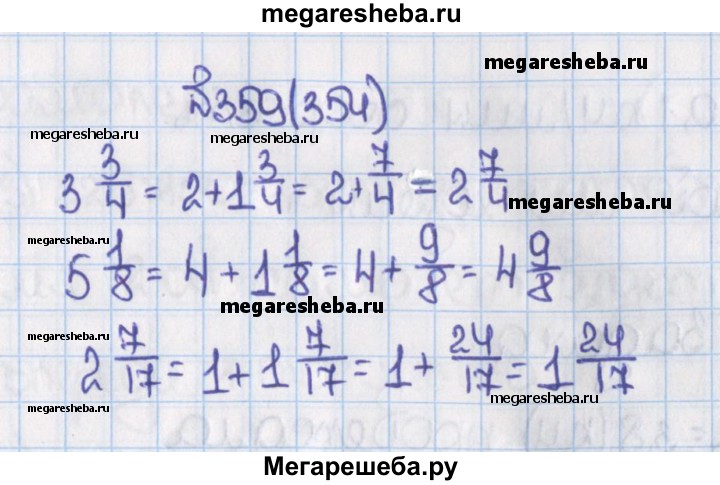 megaresheba.ru
megaresheba.ru
№359(354)
megaresheba.ru megaresheba.ru
3 3/4 = 2 + 1 3/4 = 2 + 7/4 = 2 7/4
megaresheba.ru
megaresheba.ru
5 1/8 = 4 + 1 1/8 = 4 + 9/8 = 4 9/8
megaresheba.ru
megaresheba.ru
2 7/17 = 1 + 1 7/17 = 1 + 24/17 = 1 24/17
megaresheba.ru
megaresheba.ru
Мегарешеба.ру